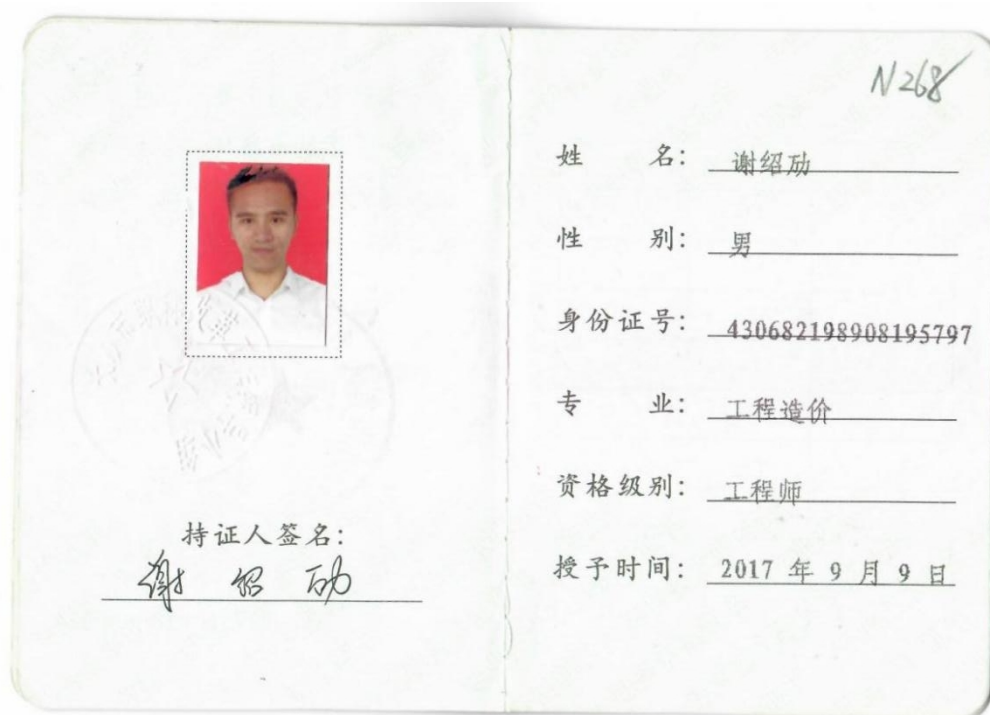 持证人签名:
谢绍励
N268
姓 名: 谢绍励
性 别: 男
身份证号: 430682198908195797
专 业: 工程造价
资格级别: 工程师
授予时间: 2017 年 9 月 9 日